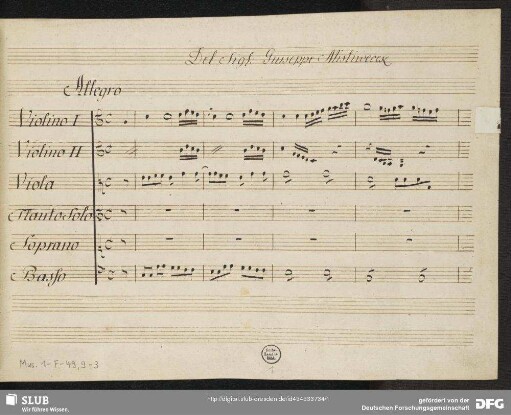 Del Sigr. Giuseppe Misliwecek
Allegro
Violino I
Violino II
Viola
Flauto Solo
Soprano
Basso
Mus. 1-F-49,9-3
1
SLUB
Wir führen Wissen.
gefördert von der
Deutschen Forschungsgemeinschaft
DFG